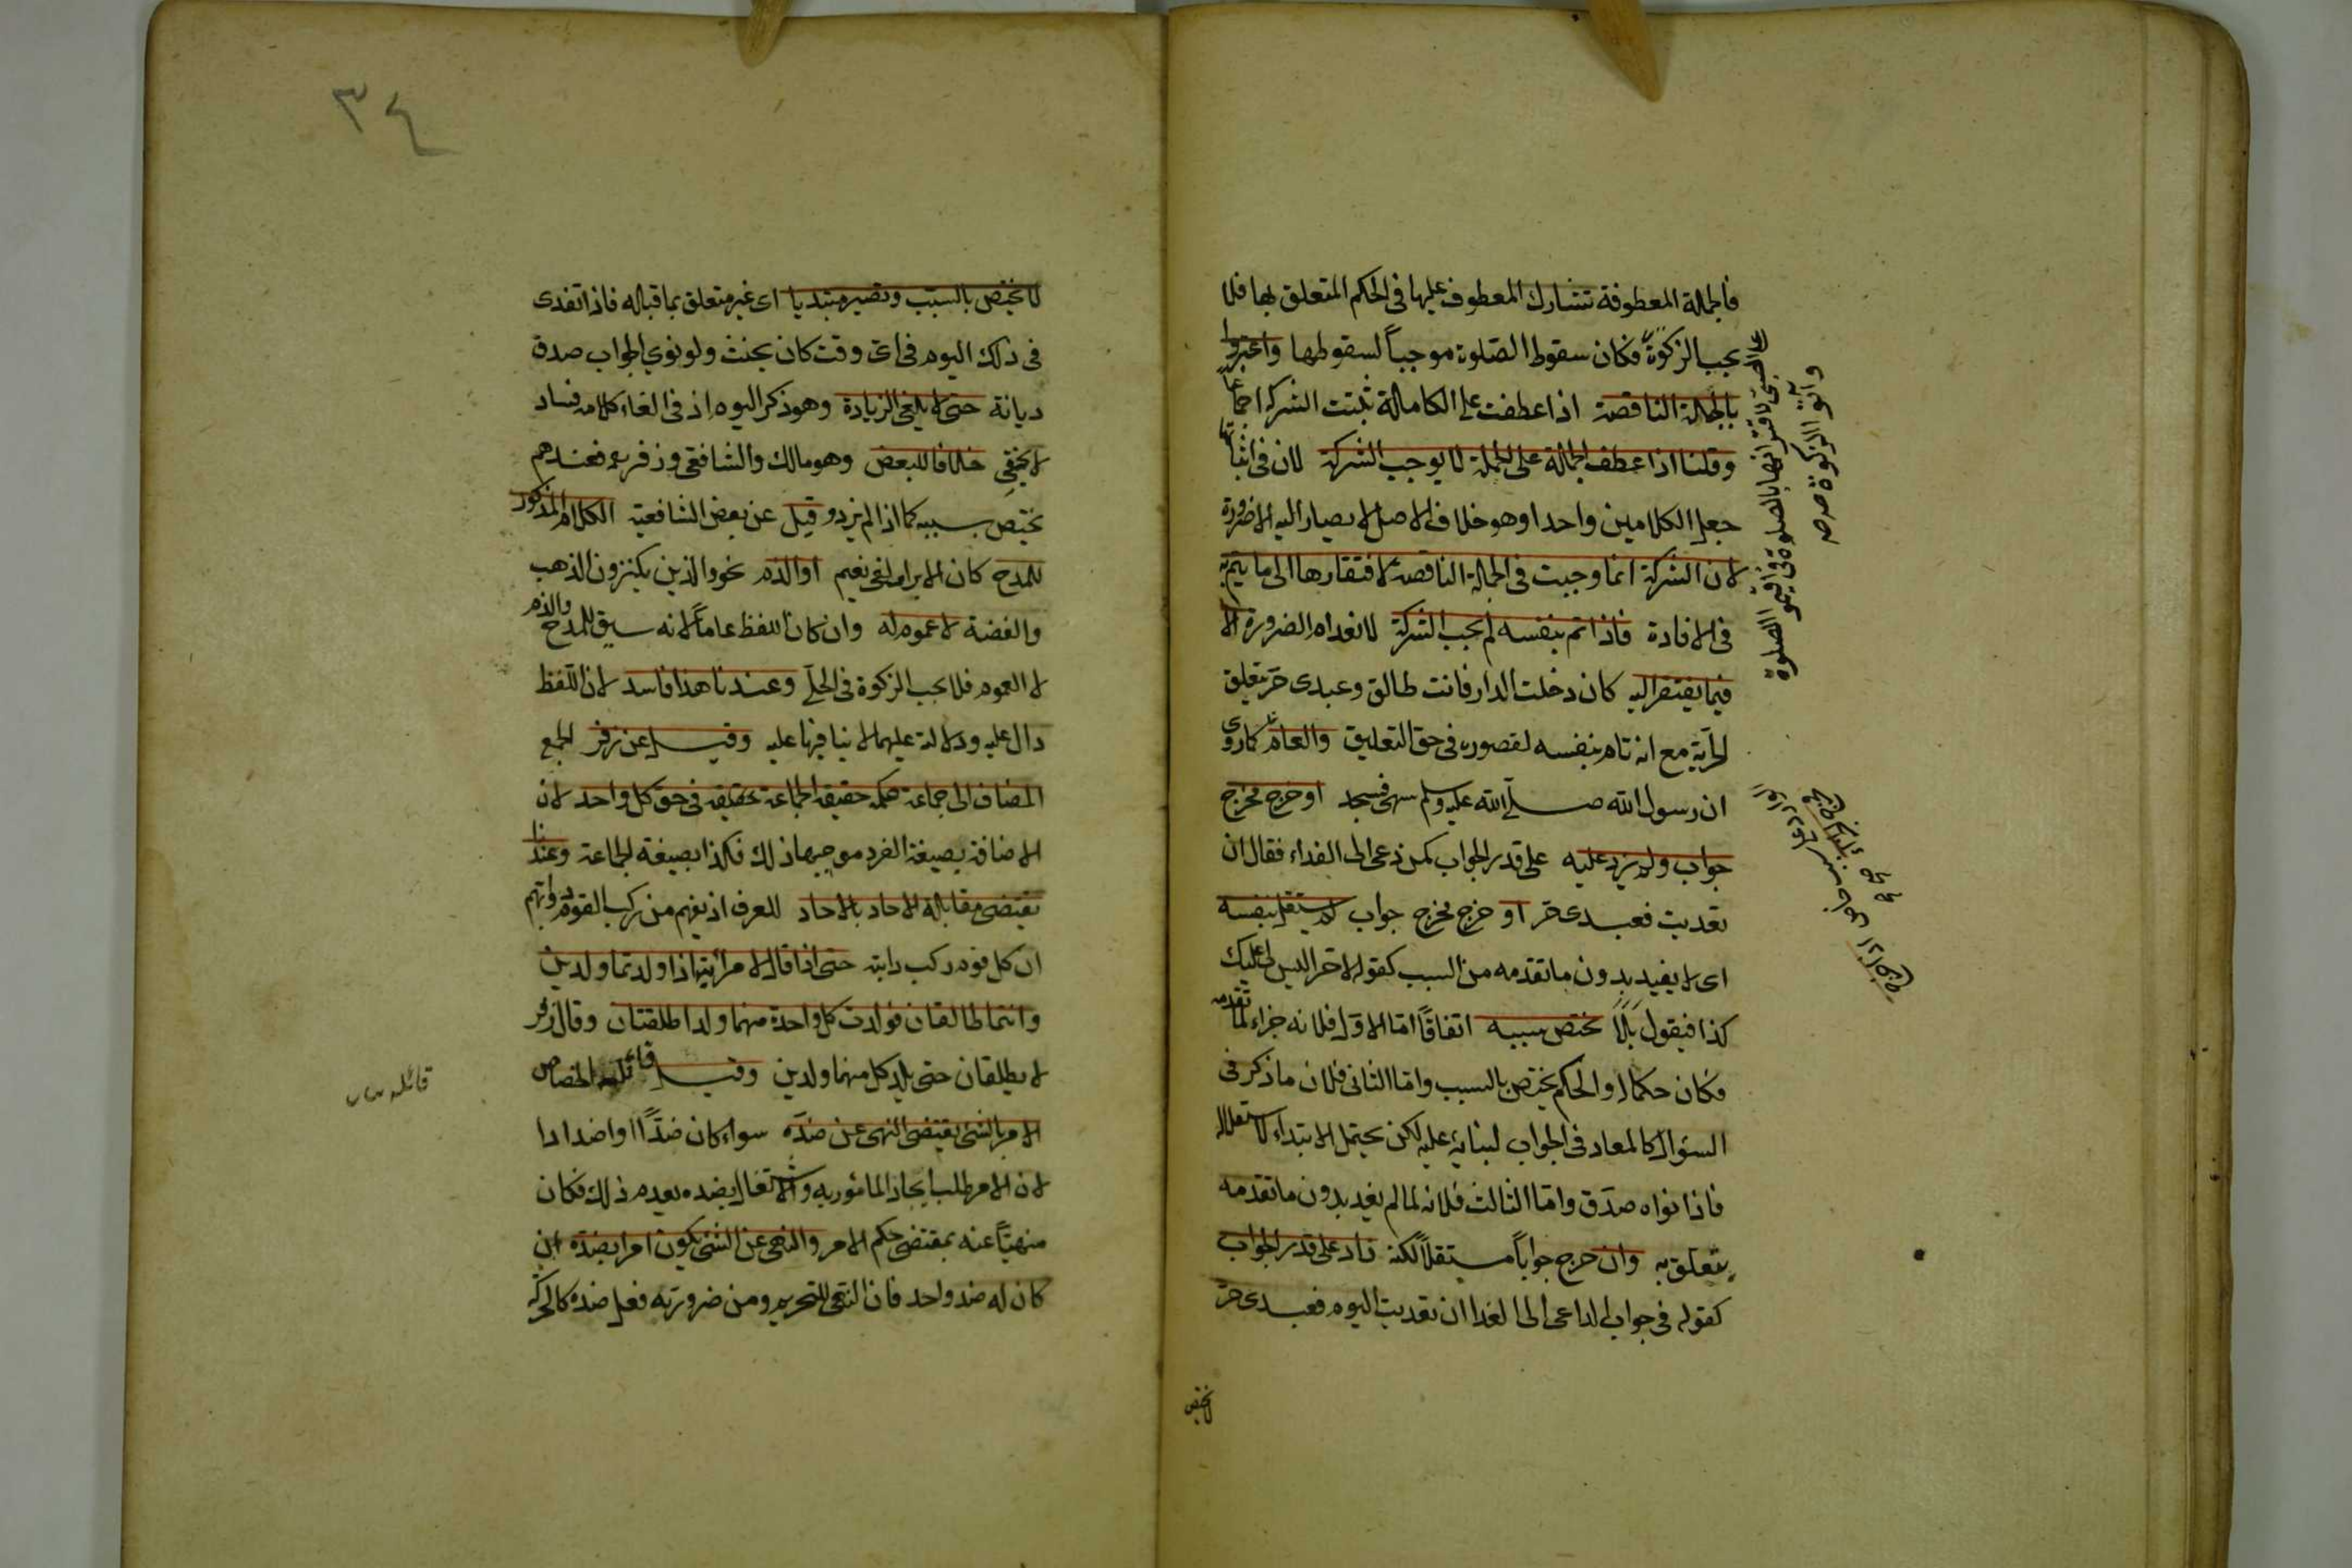 فالجملة المعطوفة تشارك المعطوف عليها في الحكم المتعلق بها فلا
يجب الزكوة فكان سقوط الصلوة موجباً لسقوطها واعتبروا
بالجملة الناقصة اذا عطفت على الكاملة تثبت الشركة اجماعا
وقلنا اذا عطف الجملة على الجملة لا يوجب الشركة لان في اثباتها
جعل الكلامين واحدا وهو خلاف الاصل لا يصار اليه الا ضرورة
لان الشركة انما وجبت في الجملة الناقصة لافتقارها الى ما يتم به
في الافادة فاذا تم بنفسه لم يجب الشركة لانعدام الضرورة الا
فيما يفتقر اليه كان دخلت الدار فانت طالق وعبدى حر تعليق
الحرية مع انه تام بنفسه لقصوره في حق التعليق والعام كما روى
ان رسول الله صلى الله عليه وسلم سهى فسجد او خرج مخرج
جواب ولم يزد عليه على قدر الجواب كمن دعى الى الغداء فقال ان
تغديت فعبدى حر او خرج مخرج جواب لم يستقل بنفسه
اى لا يفيد بدون ما تقدمه من السبب كقوله لاخر اليس لى عليك
كذا فيقول بلا يختص بسببه اتفاقاً اما الاول فلانه جزاء لما تقدمه
فكان حكما له والحكم يختص بالسبب واما الثانى فلان ما ذكر في
السؤال كالمعاد في الجواب لبنائه عليه لكن يحتمل الابتداء لاستقلاله
فاذا نواه صدق واما الثالث فلانه لما لم يفد بدون ما تقدمه
يتعلق به وان خرج جواباً مستقلاً لكنه زاد على قدر الجواب
كقوله في جواب الداعى الى الغدا ان تغديت اليوم فعبدى حر
لا يختص
على الصبى لاقترانها بالصلوة في اقيموا الصلوة
وآتوا الزكوة صح
٣٤
لا يختص بالسبب وتصير مبتديا اى غير متعلق بما قبله فاذا تغدى
في ذلك اليوم في اى وقت كان يحنث ولو نوى الجواب صدق
ديانة حتى لا يلغى الزيادة وهو ذكر اليوم اذ في الغاء كلامه فساد
لا يخفى خلافا للبعض وهو مالك والشافعى وزفر رحم فعندهم
يختص بسببه كما اذا لم يزد وقيل عن بعض الشافعية الكلام المذكور
للمدح كان الابرار لفى نعيم او الذم نحو والذين يكنزون الذهب
والفضة لا عموم له وان كان اللفظ عاماً لانه سيق للمدح والذم
لا العموم فلا يجب الزكوة في الحلى وعندنا هذا فاسد لان اللفظ
دال عليه ودلالته عليهما لا ينافيها عليه وقيل عن زفر الجمع
المضاف الى جماعة حكمه حقيقة الجماعة بحقيقه في حق كل واحد لان
الاضافة بصيغة الفرد موجبها ذلك فكذا بصيغة الجماعة وعندنا
يقتضى مقابلة الاحاد بالاحاد للعرف اذ يفهم من ركب القوم دوابهم
ان كل قوم ركب دابته حتى اذا قال لامرأتيه اذا ولدتما ولدين
وانتما طالقان فولدت كل واحدة منهما ولدا طلقتان وقال زفر
لا يطلقان حتى يلد كل منهما ولدين وقيل قائله الخصاص
الامر بالشئ يقتضى النهى عن ضده سواء كان ضداً او اضدادا
لان الامر طلب ايجاد المأمور به والاشتغال بضده يعدم ذلك فكان
منهياً عنه بمقتضى حكم الامر والنهى عن الشئ يكون امرا بضده ان
كان له ضد واحد فان النهى للتحريم ومن ضرورته فعل ضده كالحركة
قائله